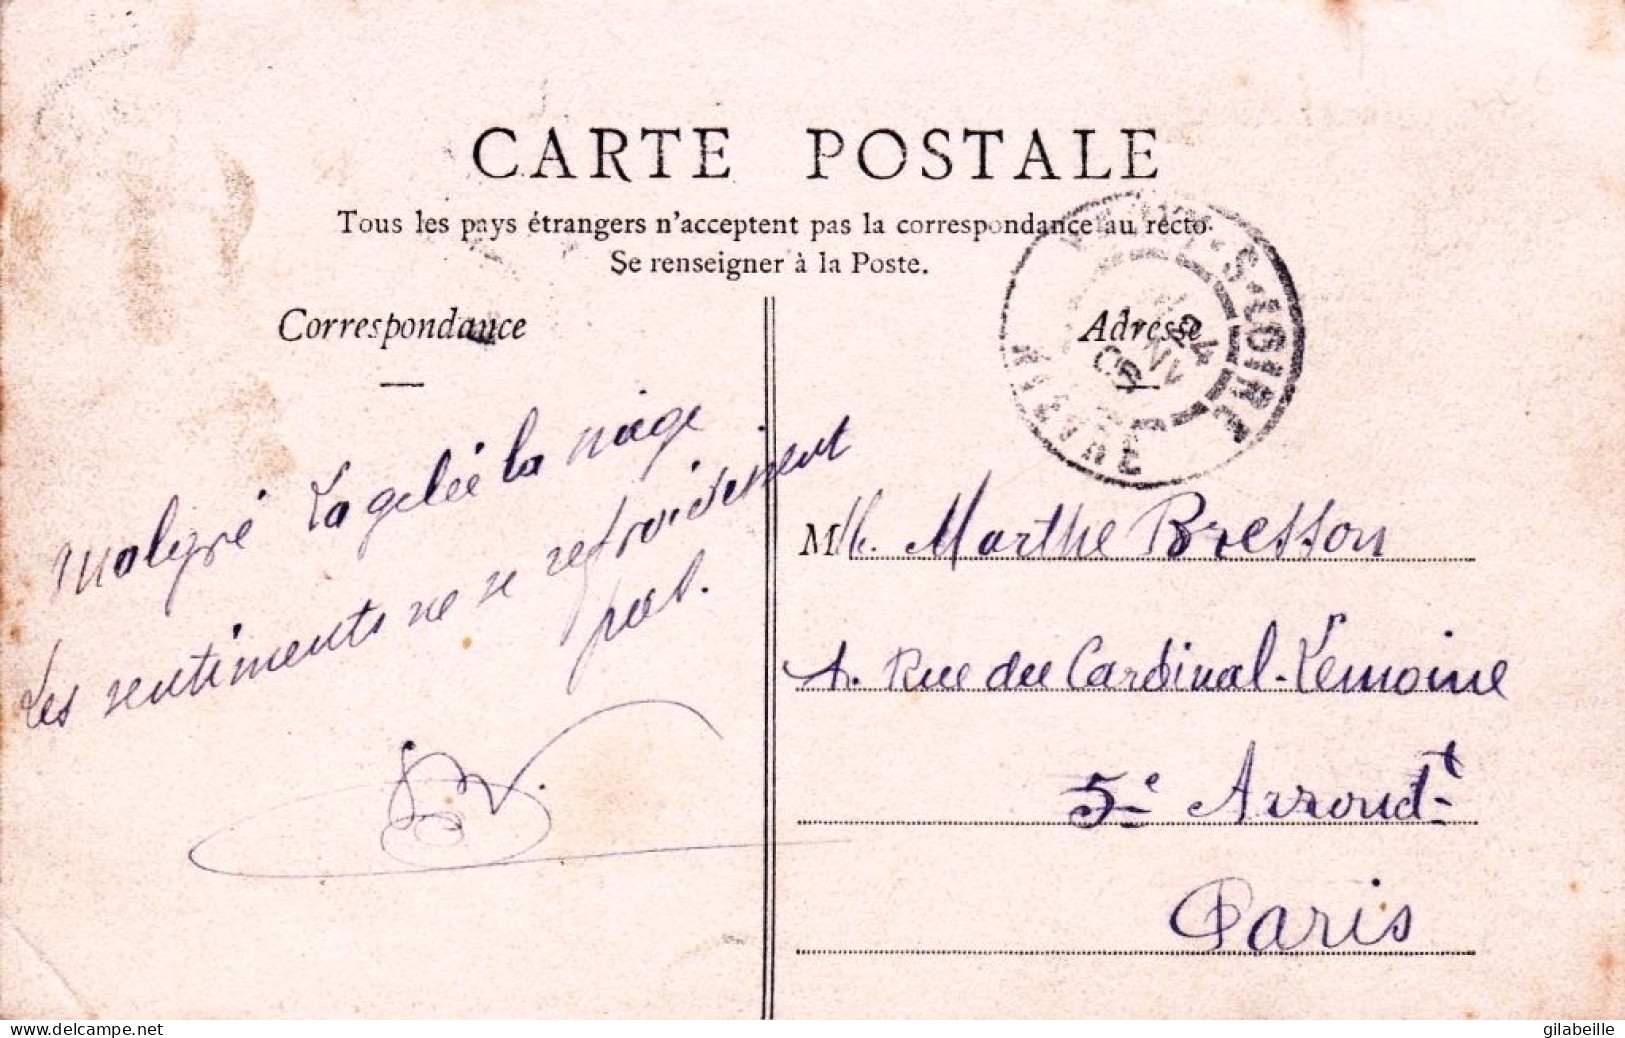 CARTE POSTALE
Tous les pays étrangers n'acceptent pas la correspondance au recto.
Se renseigner à la Poste.
Correspondance
Adresse
S-LOIRE
24
05
Malgré la gelée la niage
les sentiments ne se refroidissent
pas.
Mlle. Marthe Bresson
1. Rue du Cardinal-Lemoine
5e Arrondt
Paris
www.delcampe.net
gilabeille